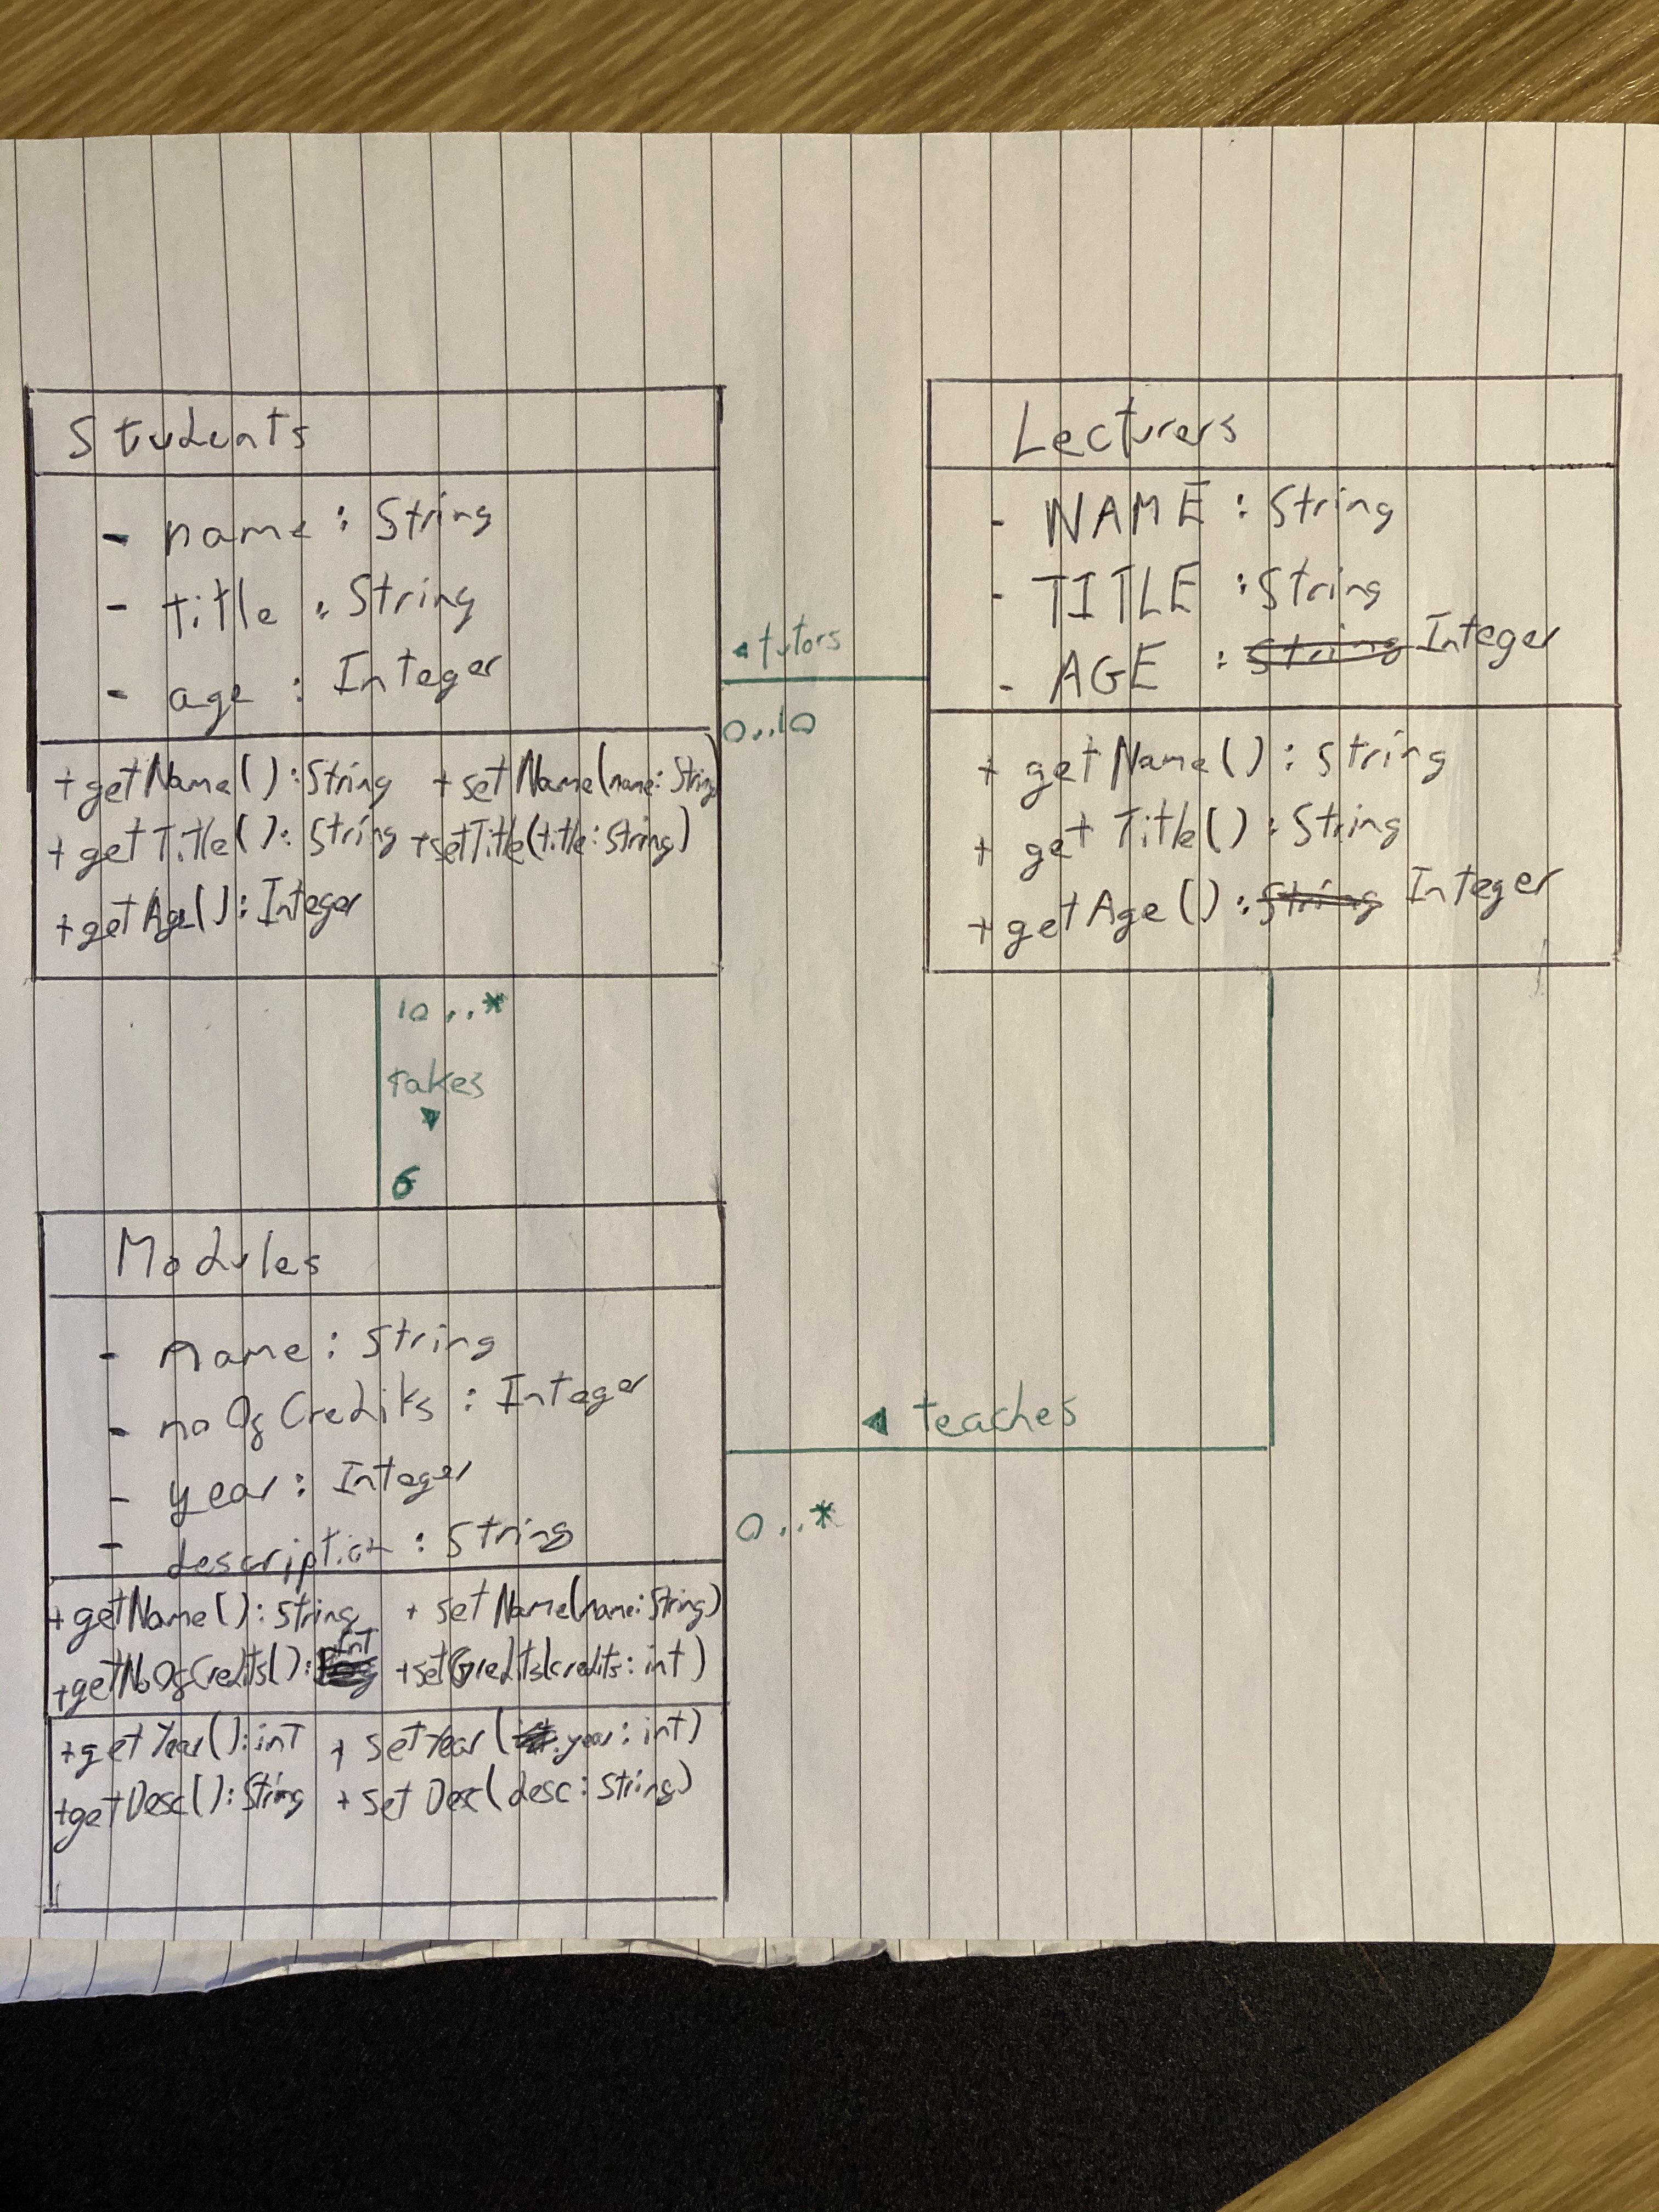 Students
- name : String
- title : String
- age : Integer
+ getName() : String + setName(name: String
+ getTitle() : String + setTitle(title : String)
+ getAge() : Integer
Lecturers
- NAME : String
- TITLE : String
- AGE : String Integer
+ getName() : String
+ get Title() : String
+ getAge() : String Integer
◄ tutors
0..10
10..*
takes
▼
6
Modules
- name : String
- noOfCredits : Integer
- year : Integer
- description : String
+ getName() : String + setName(name: String)
+ getNoOfCredits() : InT + setCredits(credits : int)
+ get Year() : inT + setYear( year : int)
+ getDesc() : String + set Desc( desc : String)
◄ teaches
0..*